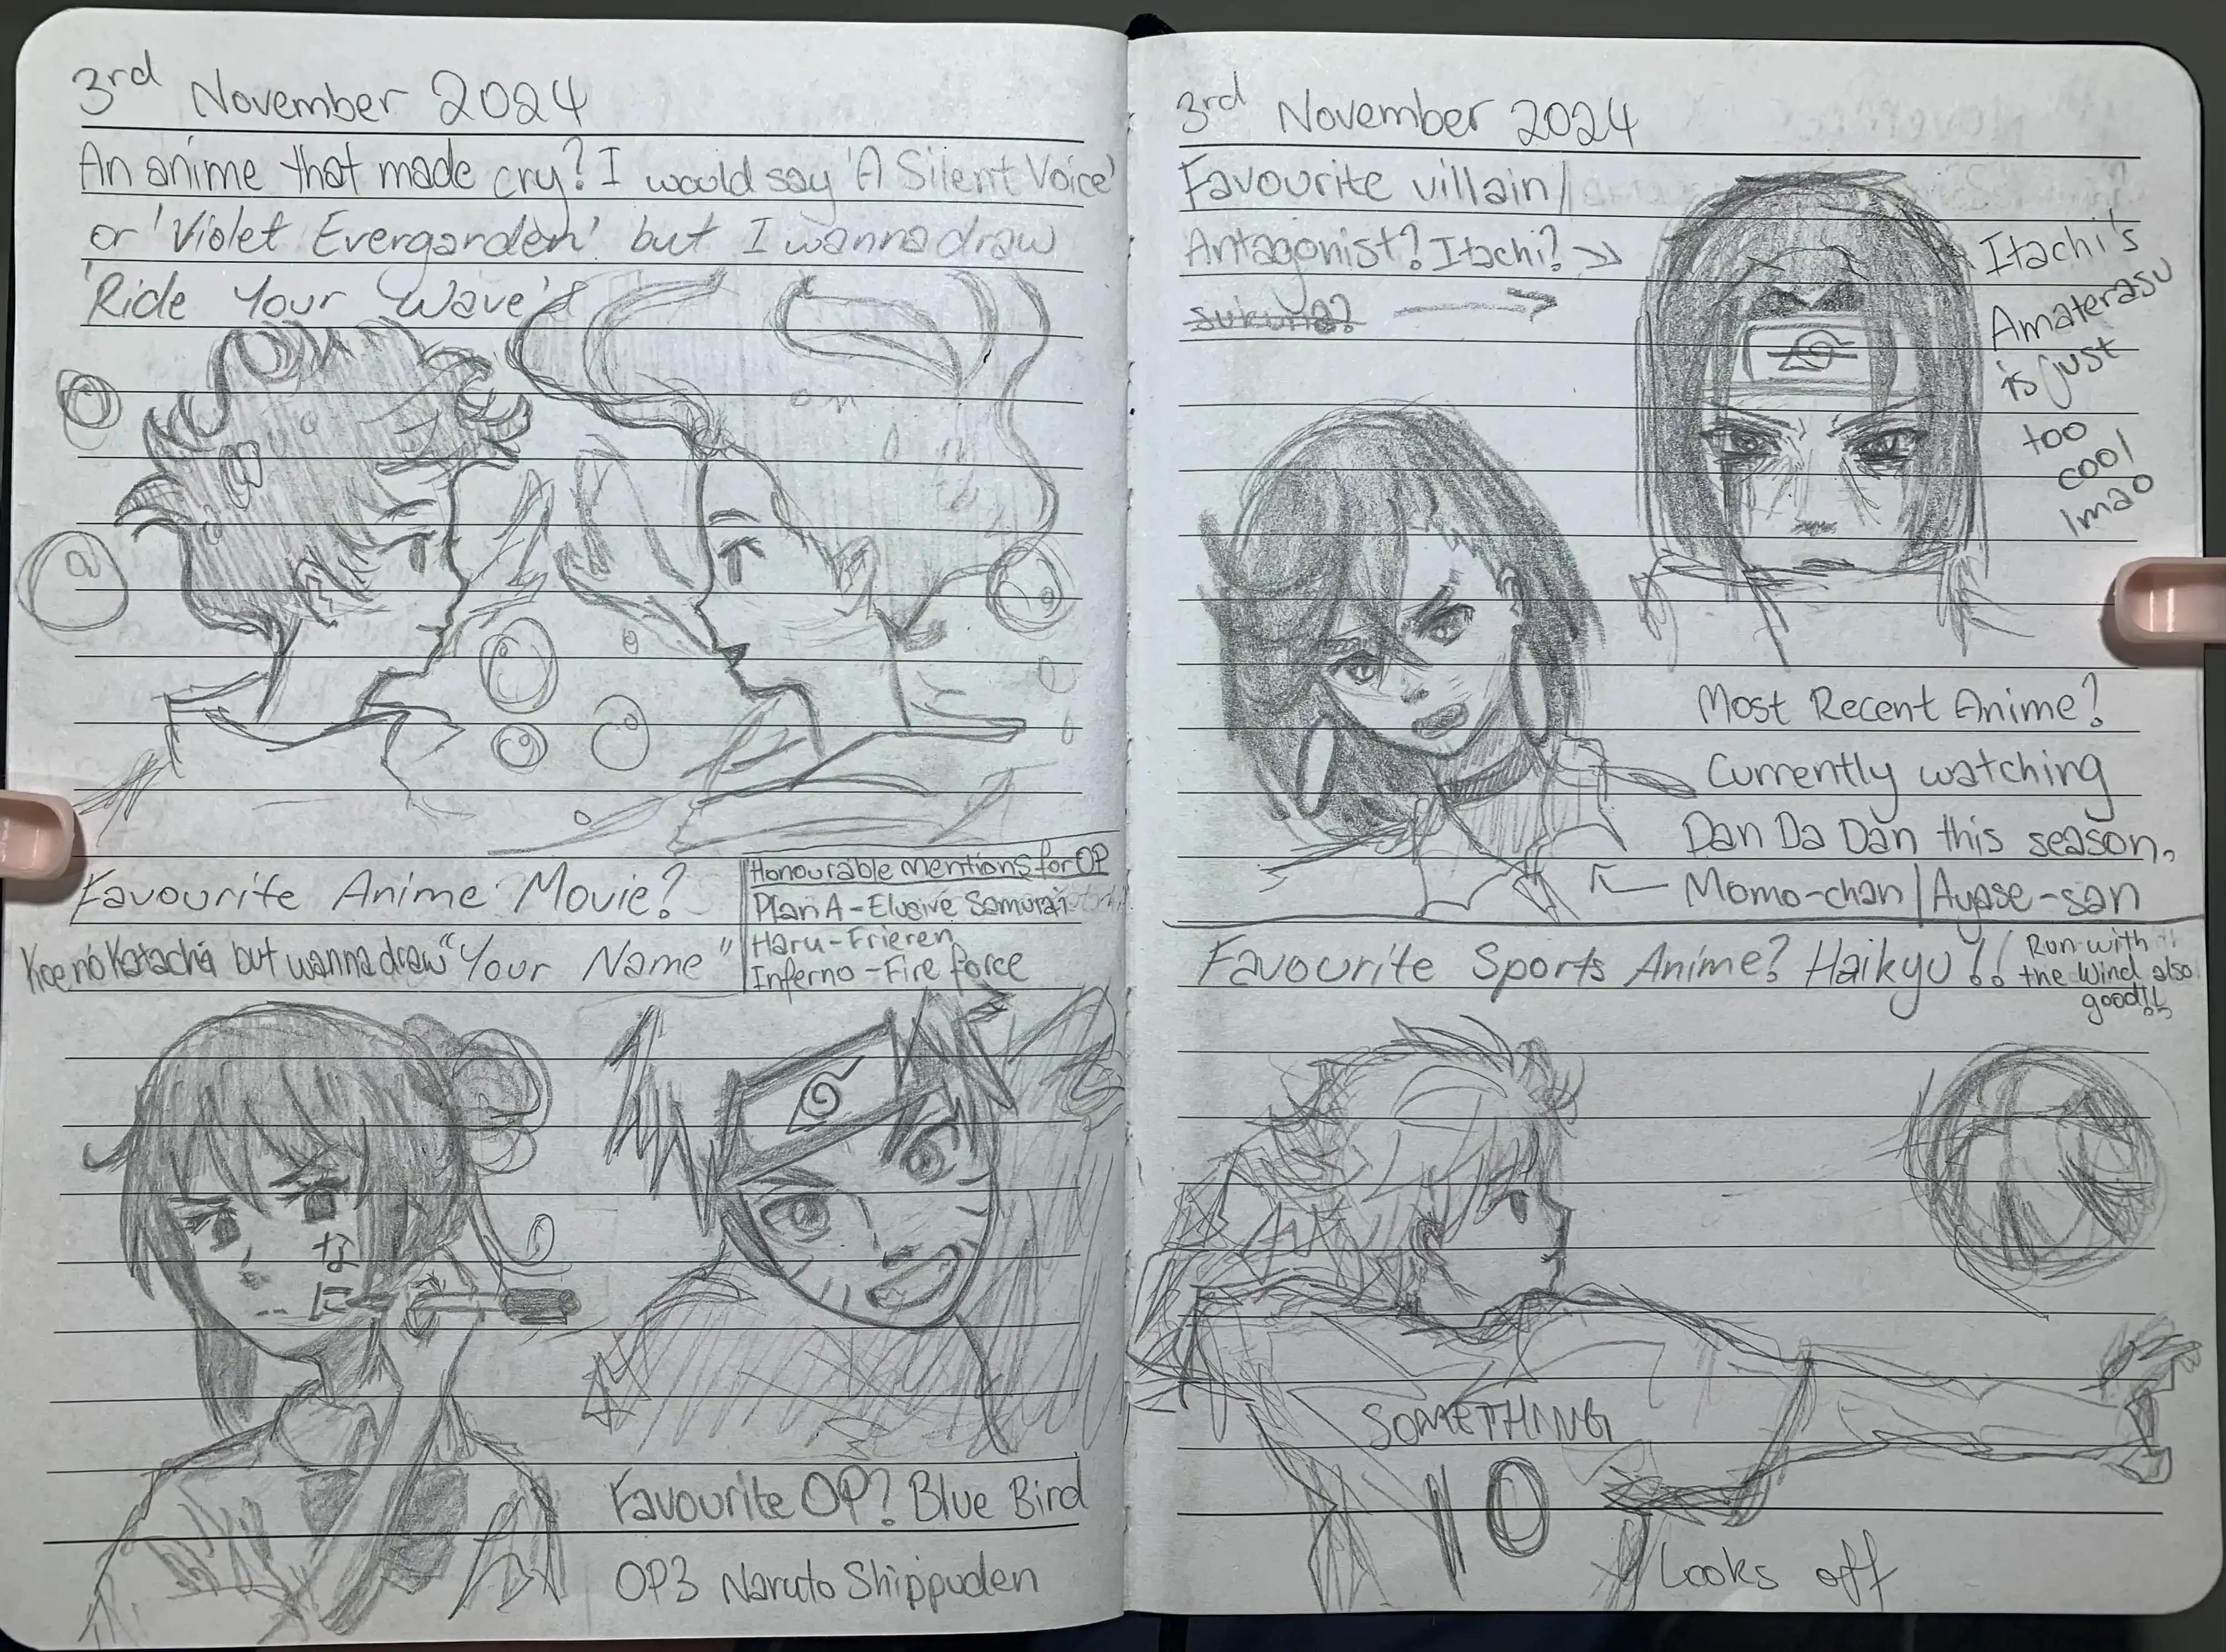 3rd November 2024
An anime that made cry? I would say 'A Silent Voice'
or 'Violet Evergarden' but I wanna draw
'Ride Your Wave'
Favourite Anime Movie?
Koe no Katachi but wanna draw "Your Name"
Honourable mentions for OP
Plan A - Elusive Samurai
Haru - Frieren
Inferno - Fire force
なに
Favourite OP? Blue Bird
OP3 Naruto Shippuden
3rd November 2024
Favourite villain/
Antagonist? Itachi?
sukuna?
Itachi's
Amaterasu
is just
too
cool
lmao
Most Recent Anime?
Currently watching
Dan Da Dan this season.
Momo-chan/Ayase-san
Favourite Sports Anime? Haikyu!!
Run with
the Wind also
good!!
SOMETHING
10
Looks off